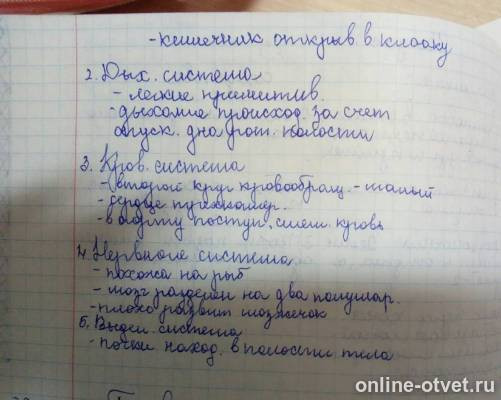 - кишечник открыв. в клоаку
2. Дых. система
- легкие примитив.
- дыхание происход. за счет
опуск. дна рот. полости
3. Кров. система
- второй круг кровообращ. - малый
- сердце трехкамер.
- в аорту поступ. смеш. кровь
4. Нервная система
- похожа на рыб
- мозг разделен на два полушар.
- плохо развит мозжечок
5. Выдел. система
- почки наход. в полости тела
online-otvet.ru